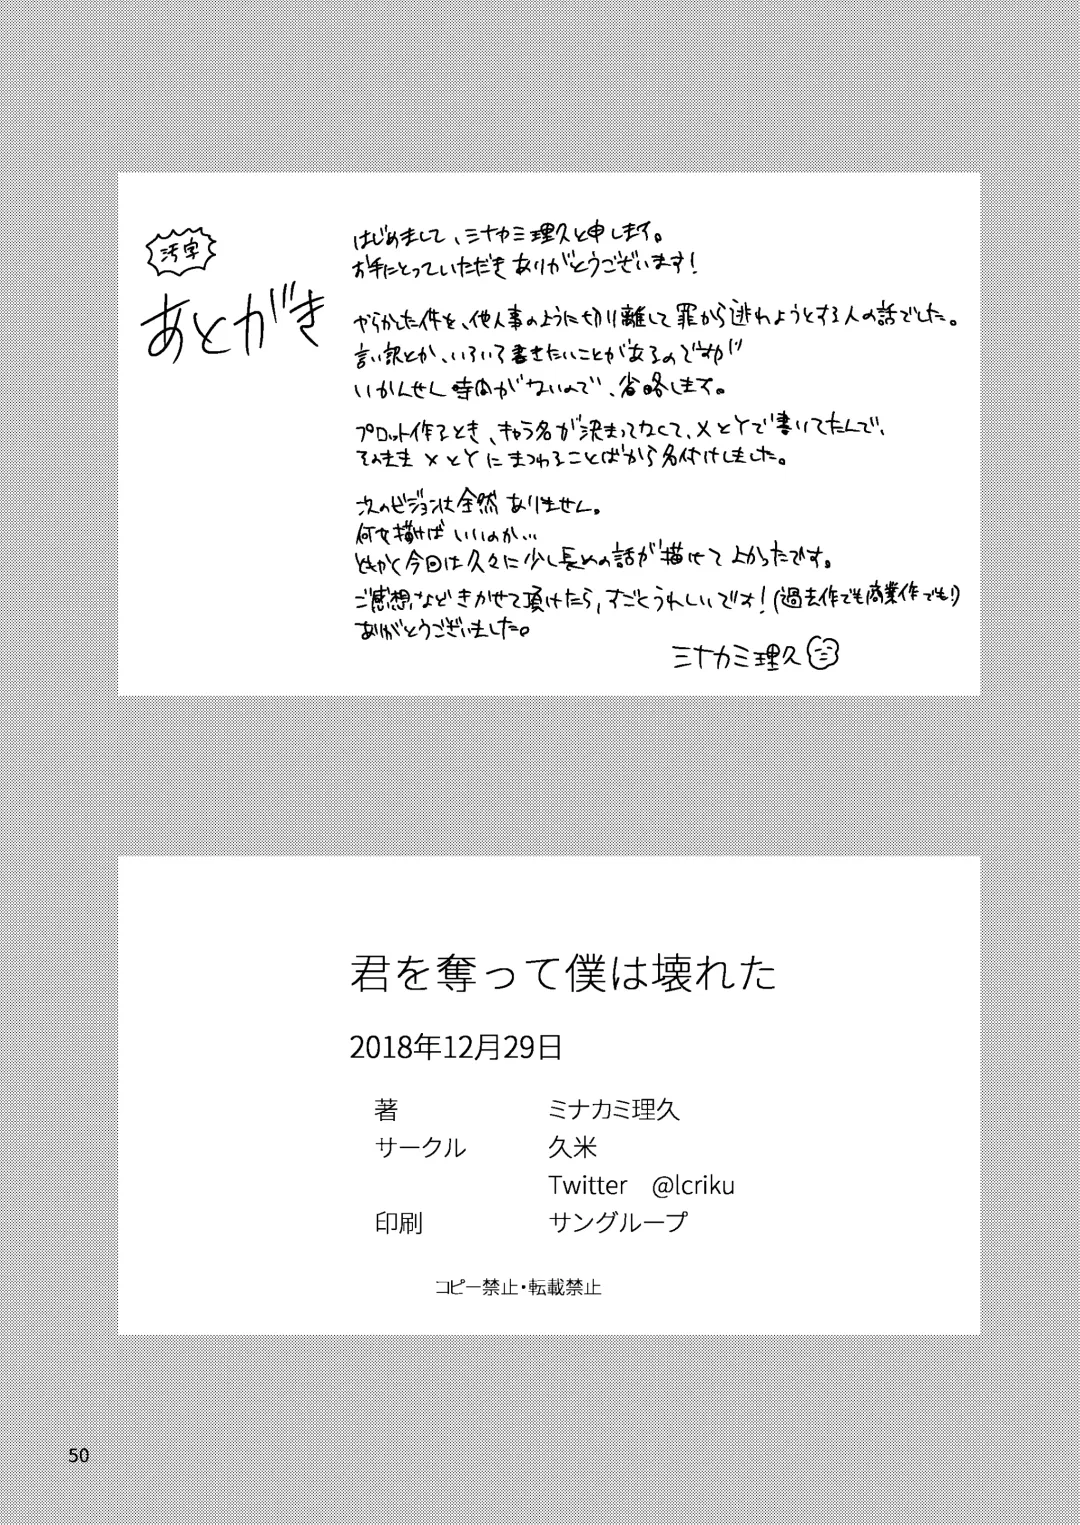 汚字
あとがき
はじめまして、ミナカミ理久と申します。
お手にとっていただきありがとうございます!
やらかした件を、他人事のように切り離して罪から逃れようとする人の話でした。
言い訳とか、いろいろ書きたいことがあるのですが
いかんせん時間がないので、省略します。
プロット作るとき、キャラ名が決まってなくて、XとYで書いてたんで、
そのままXとYにまつわることばから名付けしました。
次のビジョンは全然ありません。
何を描けばいいのか…
ともかく今回は久々に少し長めの話が描けてよかったです。
ご感想などきかせて頂けたら、すごくうれしいです!(過去作でも商業作でも!)
ありがとうございました。
ミナカミ理久
君を奪って僕は壊れた
2018年12月29日
著 ミナカミ理久
サークル 久米
Twitter @lcriku
印刷 サングループ
コピー禁止・転載禁止
50